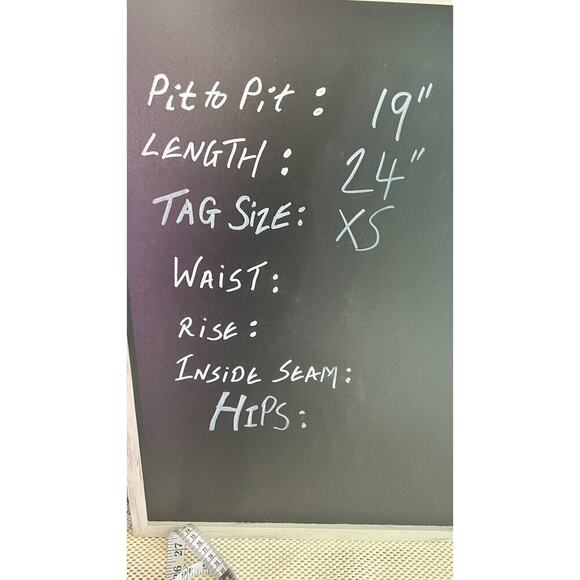 Pit to Pit: 19"
LENGTH: 24"
TAG SIZE: XS
WAIST:
RISE:
INSIDE SEAM:
HIPS:
27